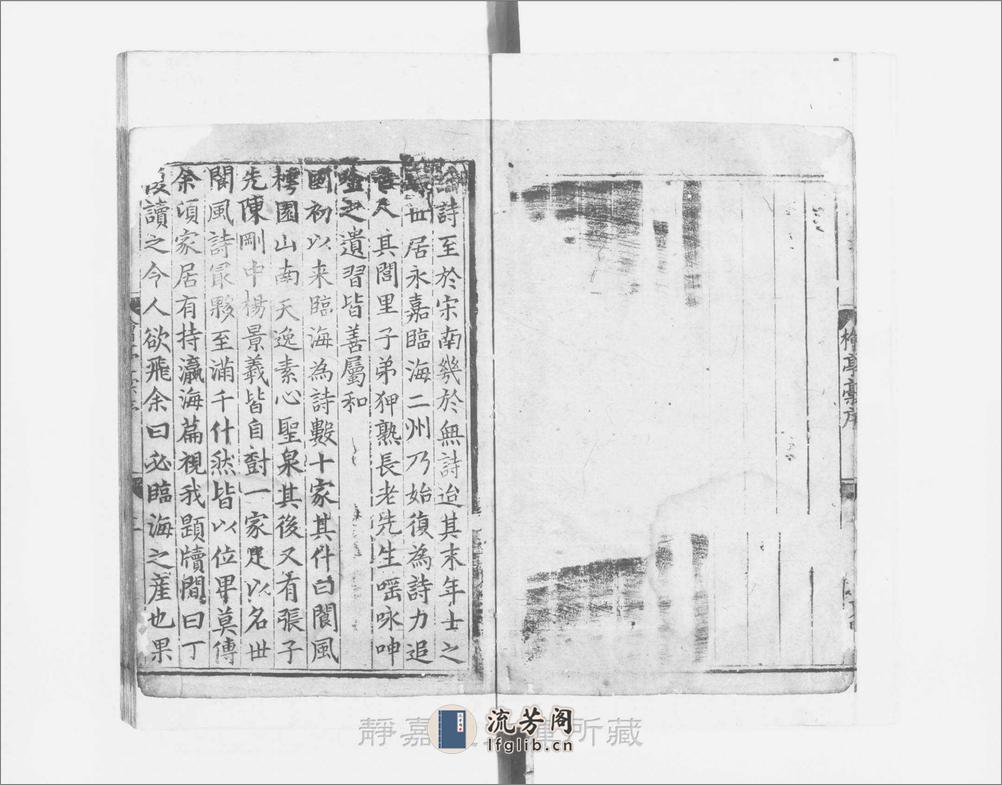 檜亭稾序
詩至於宋南幾於無詩迨其末年士之
世居永嘉臨海二州乃始復為詩力追
其閭里子弟狎熟長老先生嘔咏呻
唫之遺習皆善屬和
國初以来臨海為詩數十家其什曰閬風
樗園山南天逸素心聖泉其後又有張子
先陳剛中楊景羲皆自對一家足以名世
閬風詩㝡夥至滿千什然皆以位卑莫傳
余頃家居有持瀛海篇視我題牘間曰丁
讀之今人欲飛余曰必臨海之産也果
靜嘉 所藏
流芳阁
lfglib.cn